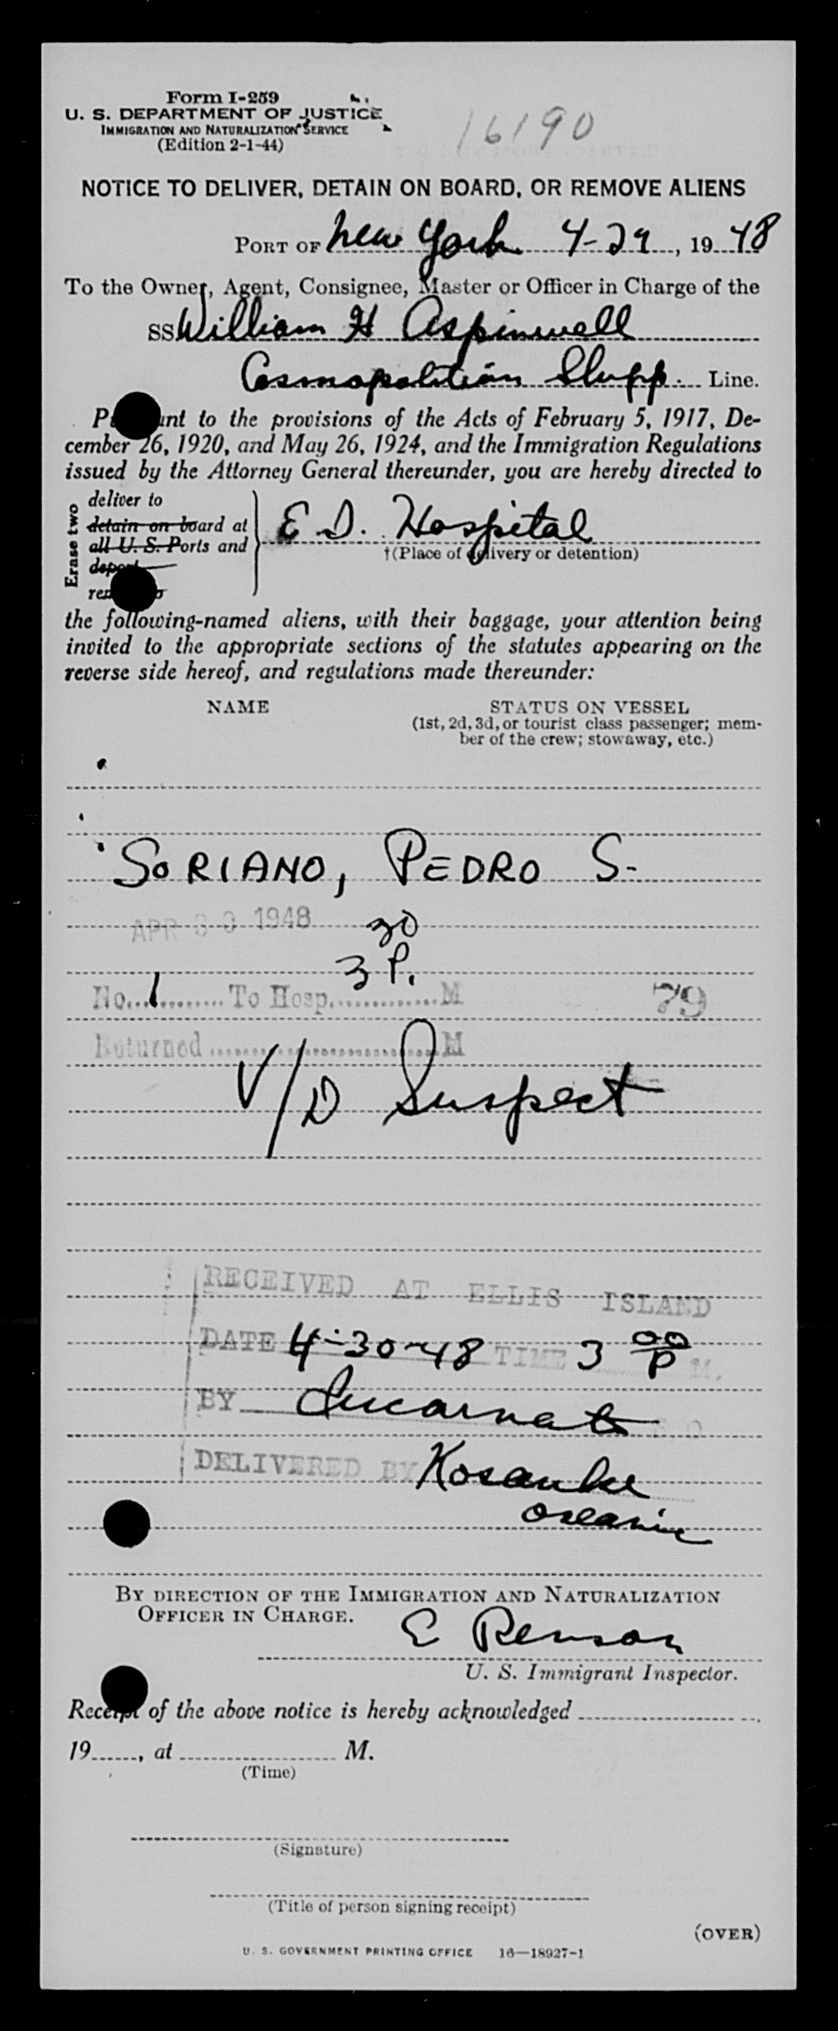 Form I-259
U. S. DEPARTMENT OF JUSTICE
IMMIGRATION AND NATURALIZATION SERVICE
(Edition 2-1-44)
16190
NOTICE TO DELIVER, DETAIN ON BOARD, OR REMOVE ALIENS
PORT OF New York 4-29, 1948
To the Owner, Agent, Consignee, Master or Officer in Charge of the
SS William H Aspinwall
Cosmopolitian Shipp. Line.
Pursuant to the provisions of the Acts of February 5, 1917, De-
cember 26, 1920, and May 26, 1924, and the Immigration Regulations
issued by the Attorney General thereunder, you are hereby directed to
Erase two
deliver to
detain on board at
all U. S. Ports and
deport
remove to
E I. Hospital
†(Place of delivery or detention)
the following-named aliens, with their baggage, your attention being
invited to the appropriate sections of the statutes appearing on the
reverse side hereof, and regulations made thereunder:
NAME
STATUS ON VESSEL
(1st, 2d, 3d, or tourist class passenger; mem-
ber of the crew; stowaway, etc.)
SORIANO, PEDRO S.
APR 30 1948
30
3 P.
No. 1 To Hosp. M
79
Returned M
V/D Suspect
RECEIVED AT ELLIS ISLAND
DATE 4-30-48 TIME 3 00 P M.
BY
DELIVERED BY Kosanke
BY DIRECTION OF THE IMMIGRATION AND NATURALIZATION
OFFICER IN CHARGE.
E Renson
U. S. Immigrant Inspector.
Receipt of the above notice is hereby acknowledged
19, at M.
(Time)
(Signature)
(Title of person signing receipt)
(OVER)
U. S. GOVERNMENT PRINTING OFFICE 16—18927-1